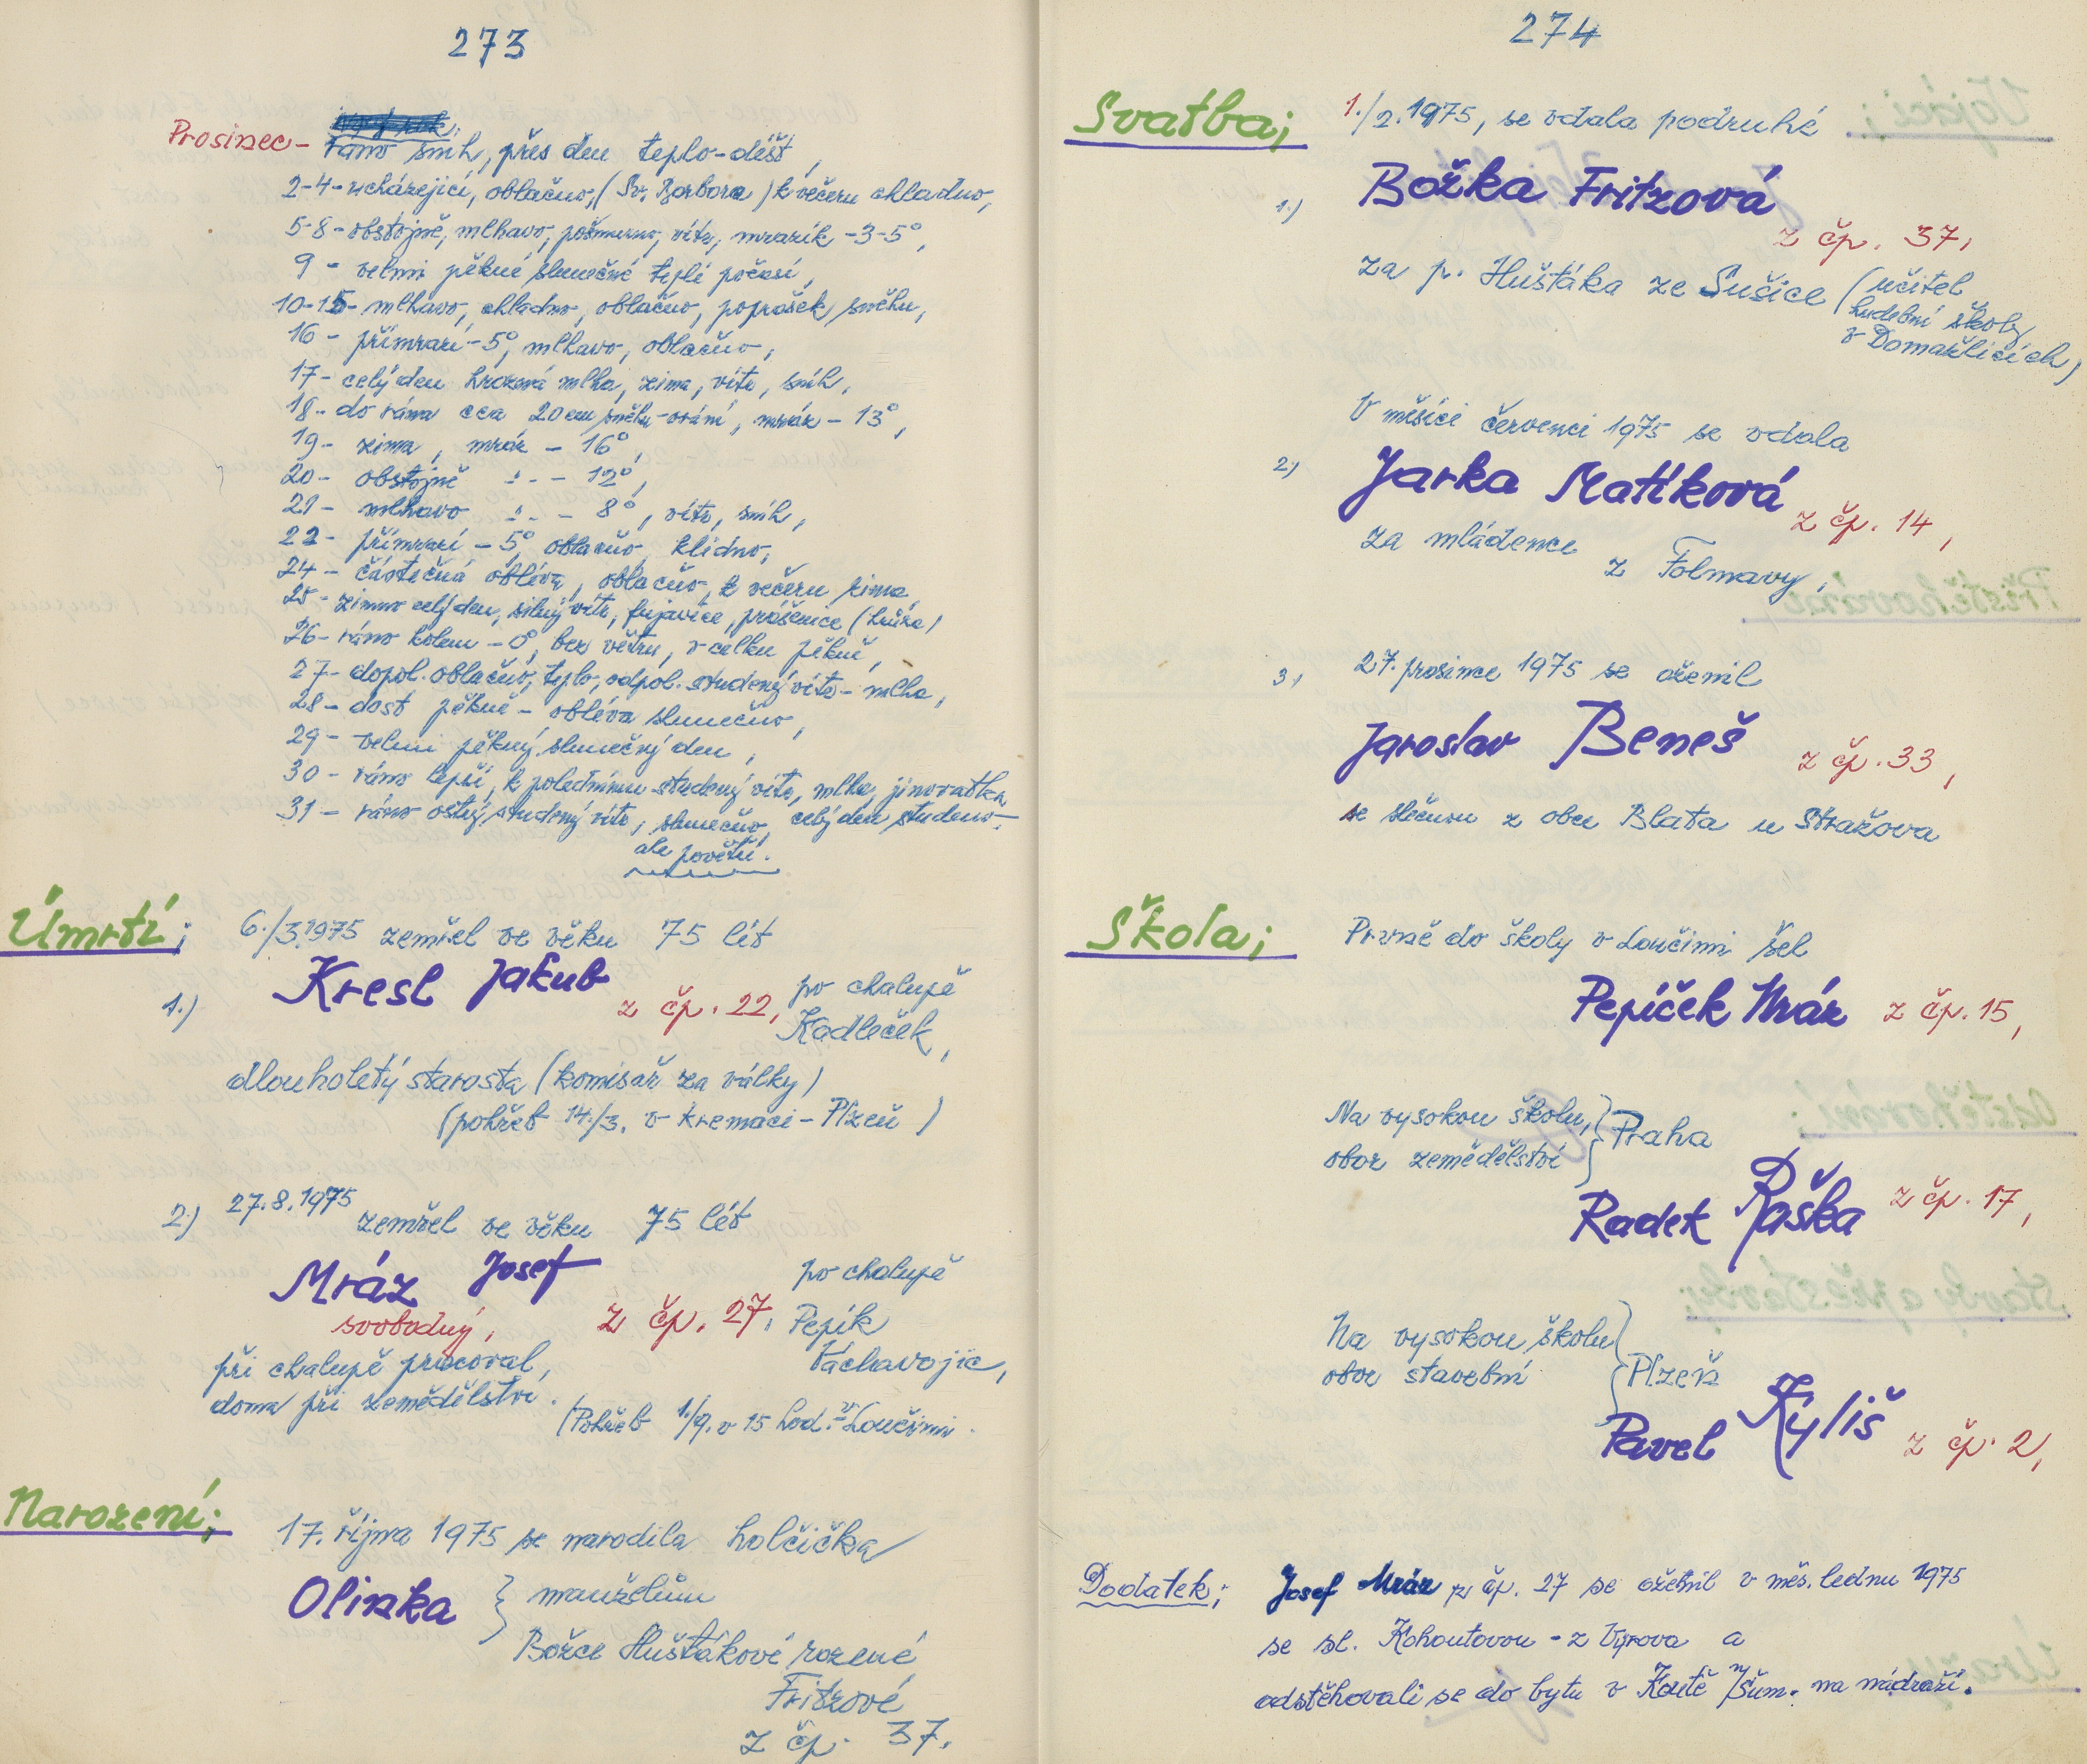 273
Prosinec - ráno sníh, přes den teplo-déšť,
2-4- ucházející, oblačno, (Sv. Barbora) k večeru chladno,
5-8- obstojně, mlhavo, pošmurno, vítr, mrazík -3-5°,
9 - velmi pěkné slunečné teplé počasí,
10-15- mlhavo, chladno, oblačno, poprašek sněhu,
16 - přimrazí -5°, mlhavo, oblačno,
17- celý den hrozná mlha, zima, vítr, sníh,
18- do rána cca 20cm sněhu-orání, mráz - 13°,
19- zima, mráz - 16°,
20- obstojně -"- - 12°,
21- mlhavo -"- - 8°, vítr, sníh,
22- přimrazí - 5°, oblačno, klidno,
24- částečná obléva, oblačno, k večeru zima,
25- zimno celý den, silný vítr, fujavice, prášenice (hrůza)
26- ráno kolem - 0°, bez větru, v celku pěkně,
27- dopol. oblačno, teplo, odpol. studený vítr - mlha,
28- dost pěkně - obléva slunečno,
29- velmi pěkný slunečný den,
30- ráno lepší, k polednímu studený vítr, mlha, jinovatka,
31- ráno ostrý studený vítr, slunečno, celý den studeno-
ale povětří.
Úmrtí; 6./3.1975 zemřel ve věku 75 lét
1.) Kresl Jakub z čp. 22, po chalupě
Kadleček,
dlouholetý starosta (komisař za války)
(pohřeb 14./3. v kremaci - Plzeň)
2.) 27.8.1975 zemřel ve věku 75 lét
Mráz Josef z čp. 27, po chalupě
svobodný, Pepík
při chalupě pracoval, Váchavojic,
doma při zemědělství. (Pohřeb 1./9. v 15 hod. v Loučimi.
Narození; 17. října 1975 se narodila holčička
Olinka } manželům
Božce Huštákové rozené
Fritzové
z čp. 37.
274
Svatba; 1./2.1975, se vdala podruhé
1.) Božka Fritzová
z čp. 37,
za p. Huštáka ze Sušice (učitel
hudební školy
v Domažlicích)
V měsíci červenci 1975 se vdala
2.) Jarka Matíková z čp. 14,
za mládence z Folmavy,
3.) 27. prosince 1975 se oženil
Jaroslav Beneš z čp. 33,
se slečnou z obce Blata u Stražova
Škola; Prvně do školy v Loučimi šel
Pepíček Mráz z čp. 15,
Na vysokou školu, } Praha
obor zemědělství
Radek Paška z čp. 17,
Na vysokou školu } Plzeň
obor stavební
Pavel Kyliš z čp. 2,
Dodatek; Josef Mráz z čp. 27 se oženil v měs. lednu 1975
se sl. Kohoutovou - z Výrova a
odstěhovali se do bytu v Koutě n/Šum. na nádraží.